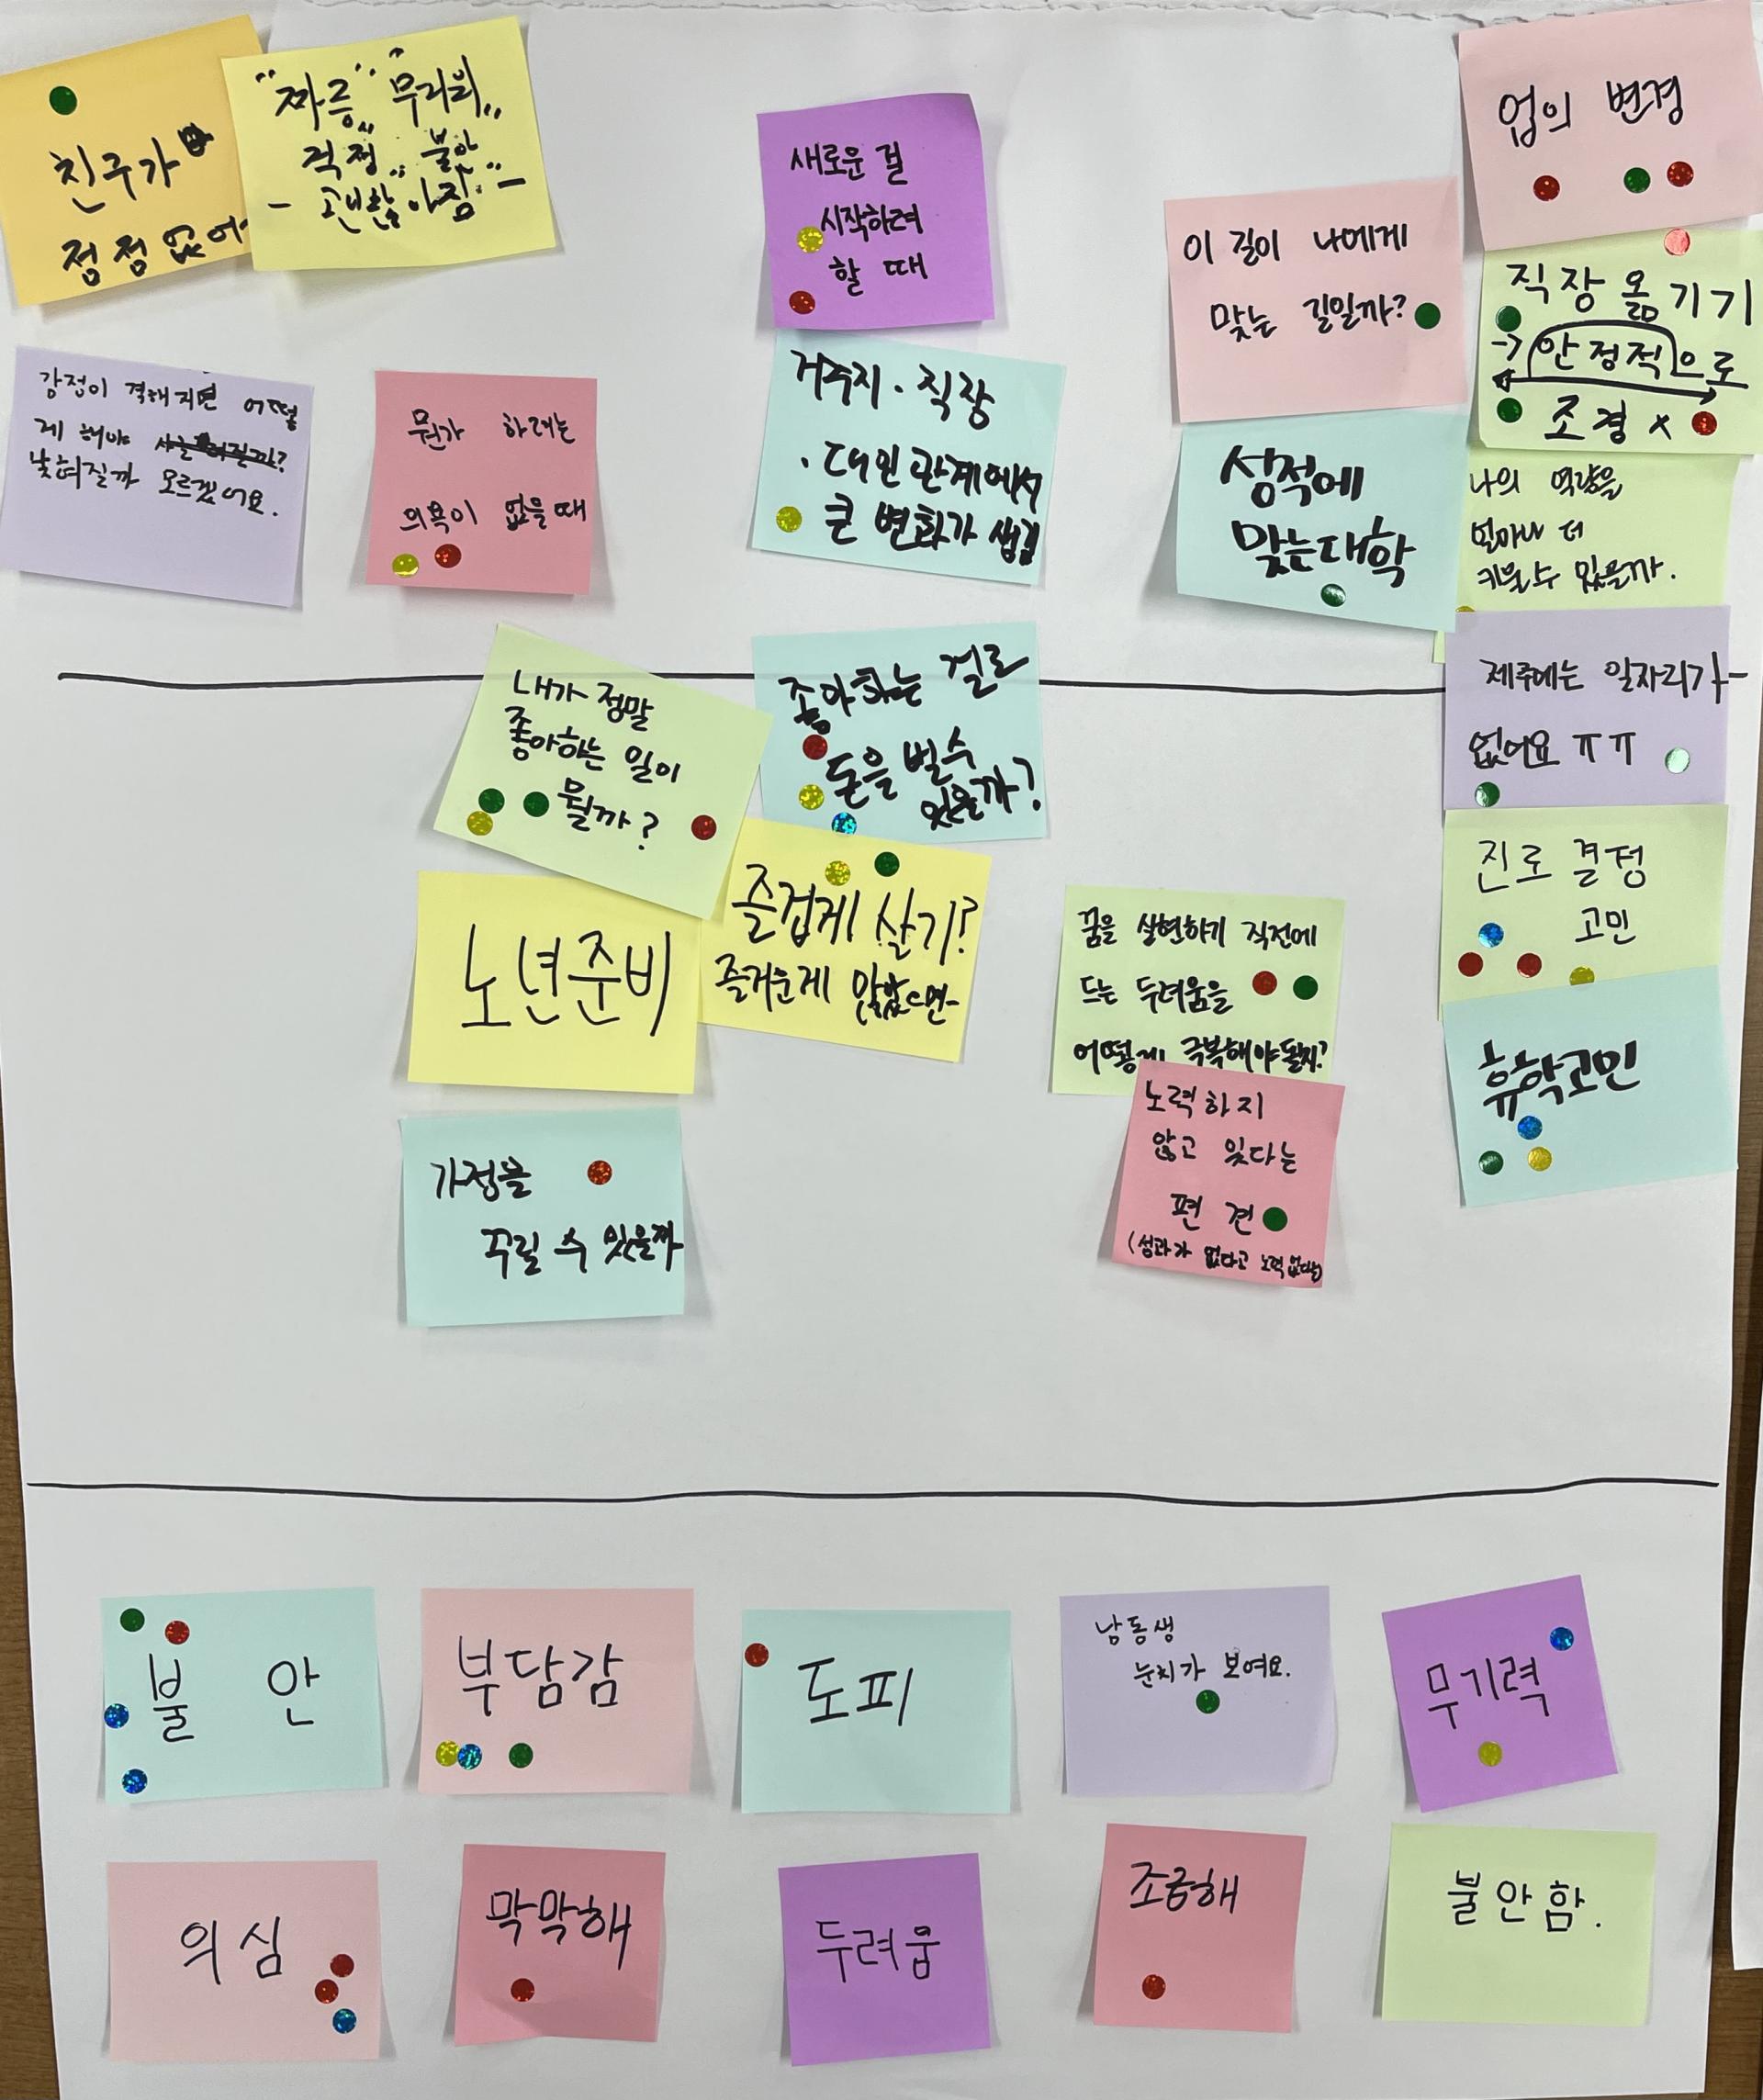 친구가
점점 없어
"짜증" "무기력"
걱정" 불안
- 괜찮아짐 -
새로운 걸
시작하려
할 때
업의 변경
이 길이 나에게
맞는 길일까?
직장 옮기기
→ 안정적으로
조경 x
감정이 격해지면 어떻
게 해야
낮춰질까 모르겠어요.
뭔가 하려는
의욕이 없을 때
거주지 · 직장
· 대인관계에서
큰 변화가 생김
성적에
맞는 대학
나의 역량을
얼마나 더
키울 수 있을까.
내가 정말
좋아하는 일이
뭘까?
좋아하는 걸로
돈을 벌 수
있을까?
제주에는 일자리가
없어요 ㅠㅠ
노년준비
즐겁게 살기?
즐거운게 많았으면~
꿈을 실현하기 직전에
드는 두려움을
어떻게 극복해야 될지?
진로 결정
고민
가정을
꾸릴 수 있을까
노력하지
않고 있다는
편견
(성과가 없다고 노력 없다는)
휴학고민
불안
부담감
도피
남동생
눈치가 보여요.
무기력
의심
막막해
두려움
조급해
불안함.